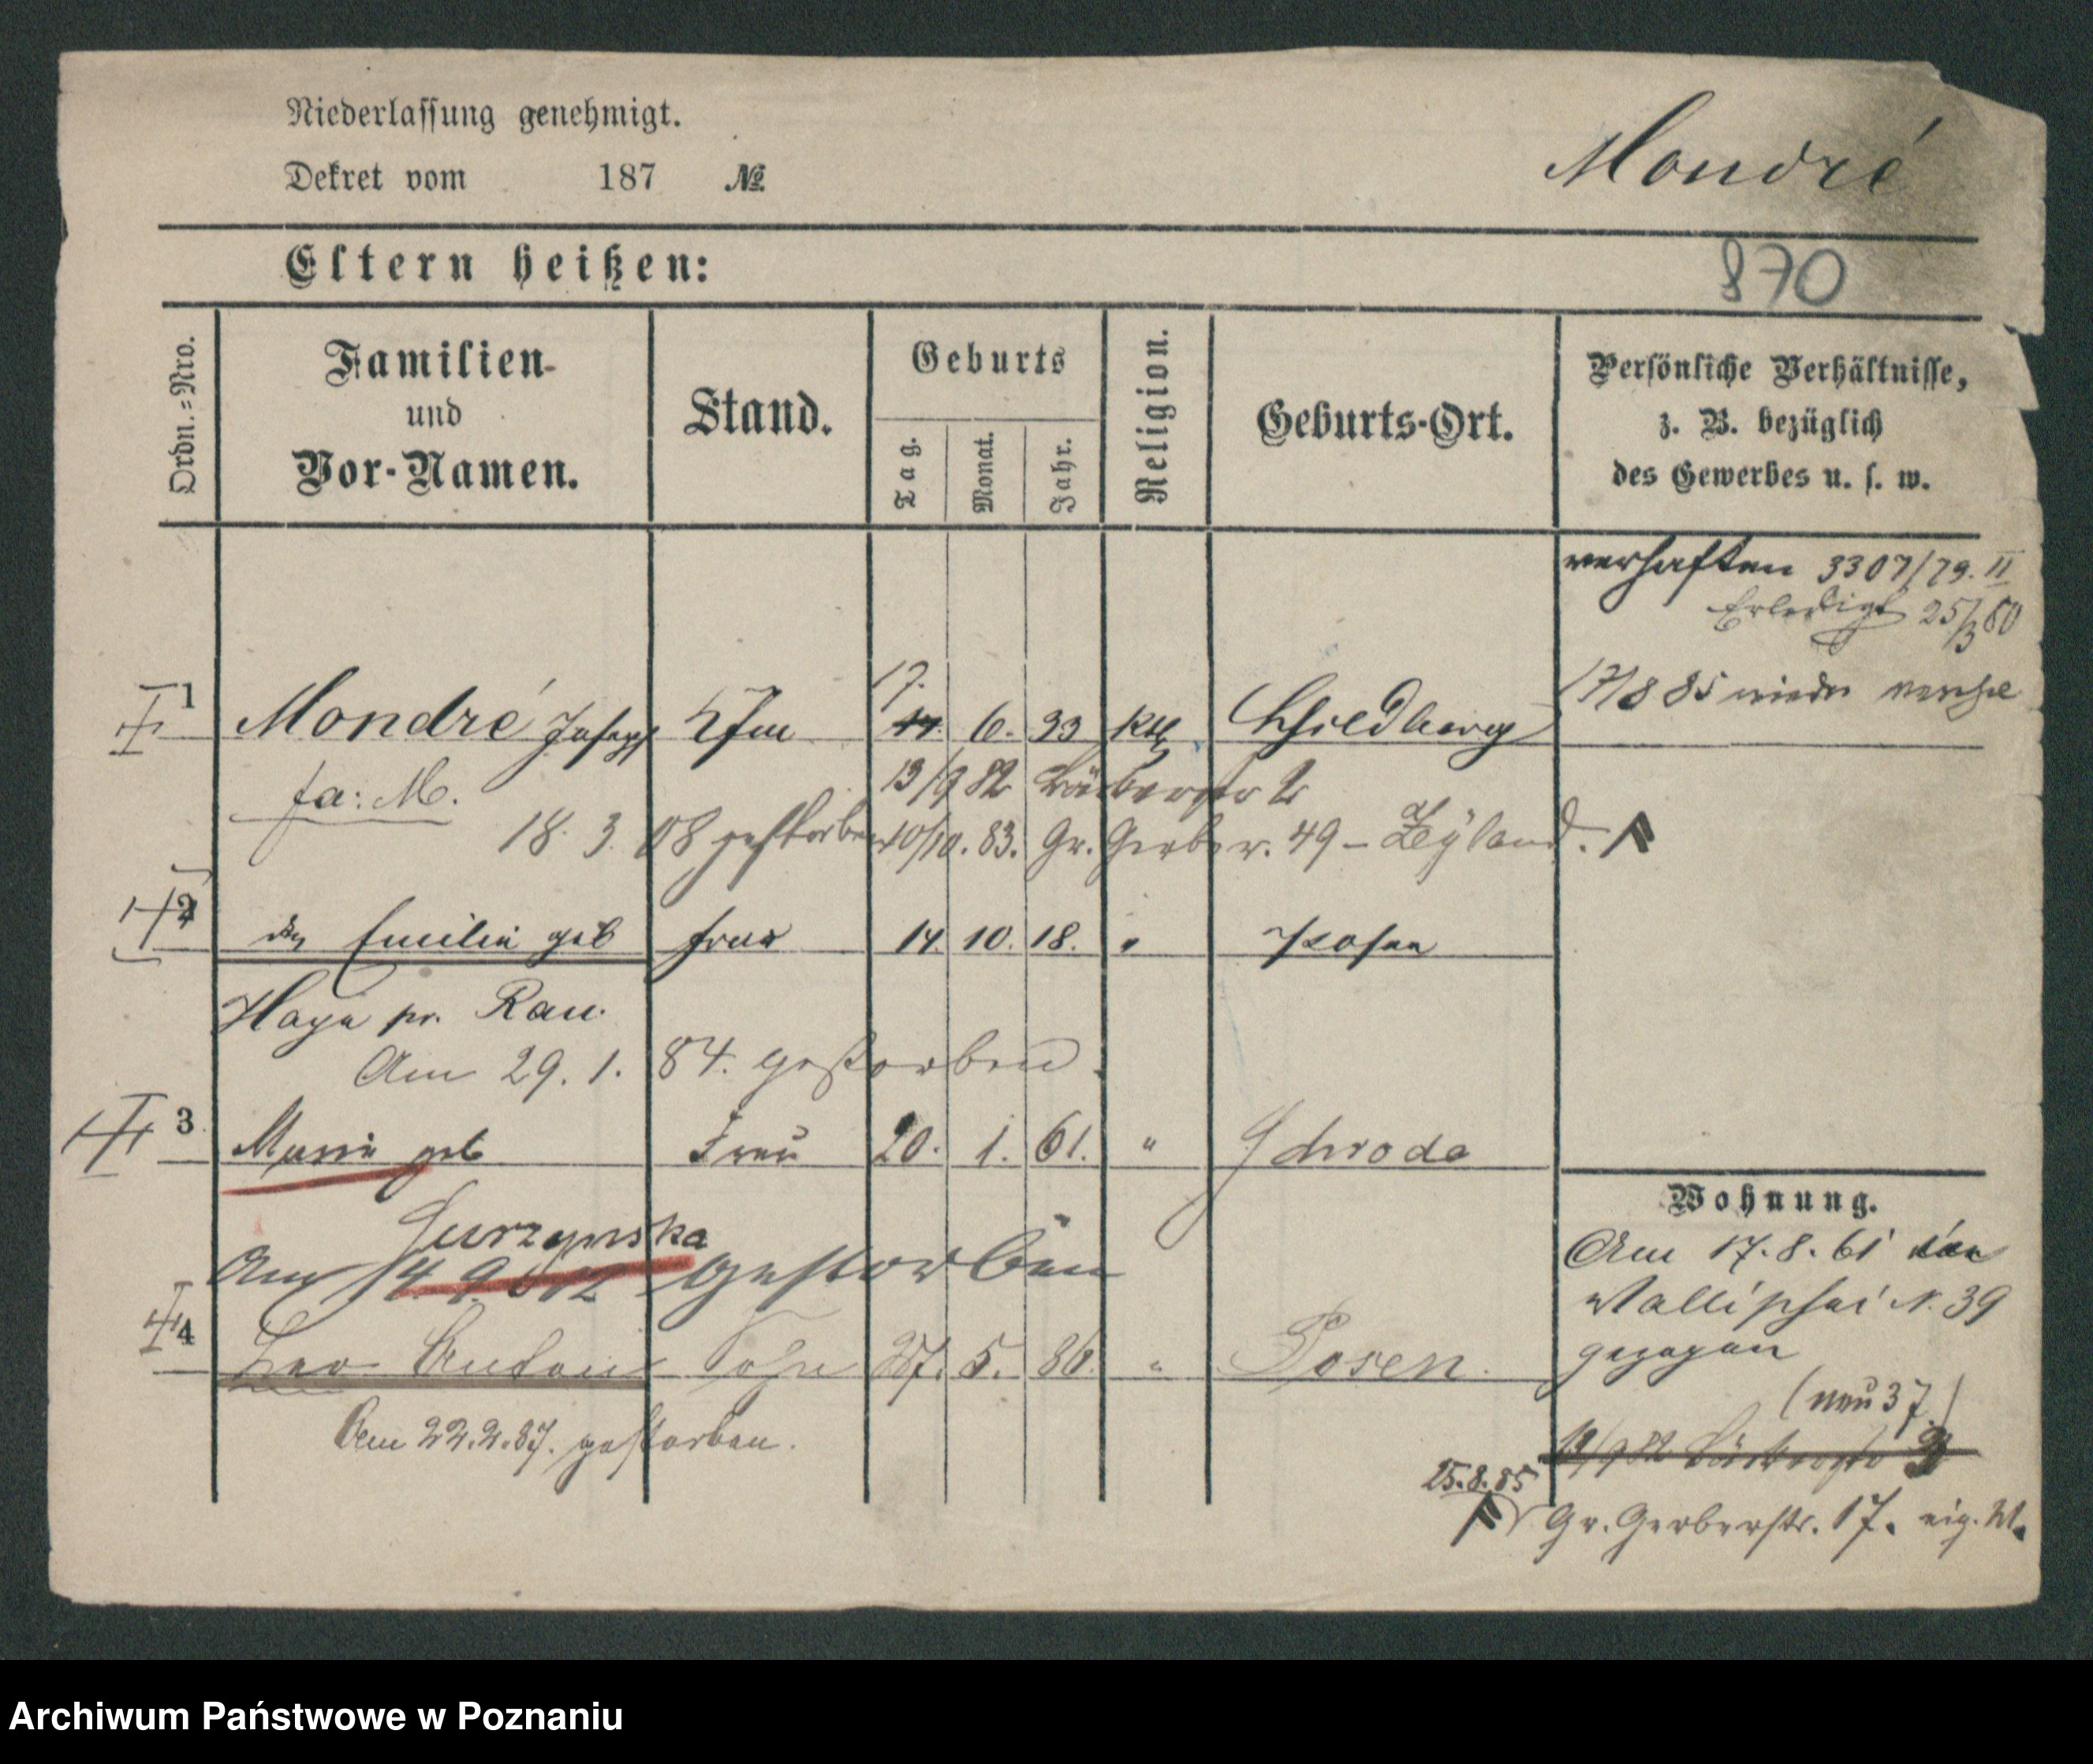 Niederlassung genehmigt.
Mondré
Dekret vom 187 №
Eltern heißen:
870
Ordn.=Nro.
Familien-
und
Vor-Namen.
Stand.
Geburts
Tag.
Monat.
Jahr.
Religion.
Geburts-Ort.
Persönliche Verhältnisse,
z. B. bezüglich
des Gewerbes u. s. w.
verhaften 3307/79. II
Erledigt 25/3 80
17/8 85 wieder
17.
1 Mondré Joseph Kfm 6. 33 kth Schildberg
fa: M.
13/9 82
18. 3. 08 gestorben
10/10. 83. Gr. Gerber. 49 –
2 Emilie geb Frau 14. 10. 18. " Posen
Haya pr. Rau.
Am 29. 1. 84. gestorben.
3 Marie geb Frau 20. 1. 61. " Schroda
Wohnung.
Am 17. 8. 61
Wallischei N. 39
gezogen
(neu 37)
Am 14. 9. gestorben
4 Leo Anton Sohn 27. 5. 86. " Posen.
Am 22. 2. 87. gestorben.
25. 8. 85
Gr. Gerberstr. 17. eig. W.
Archiwum Państwowe w Poznaniu